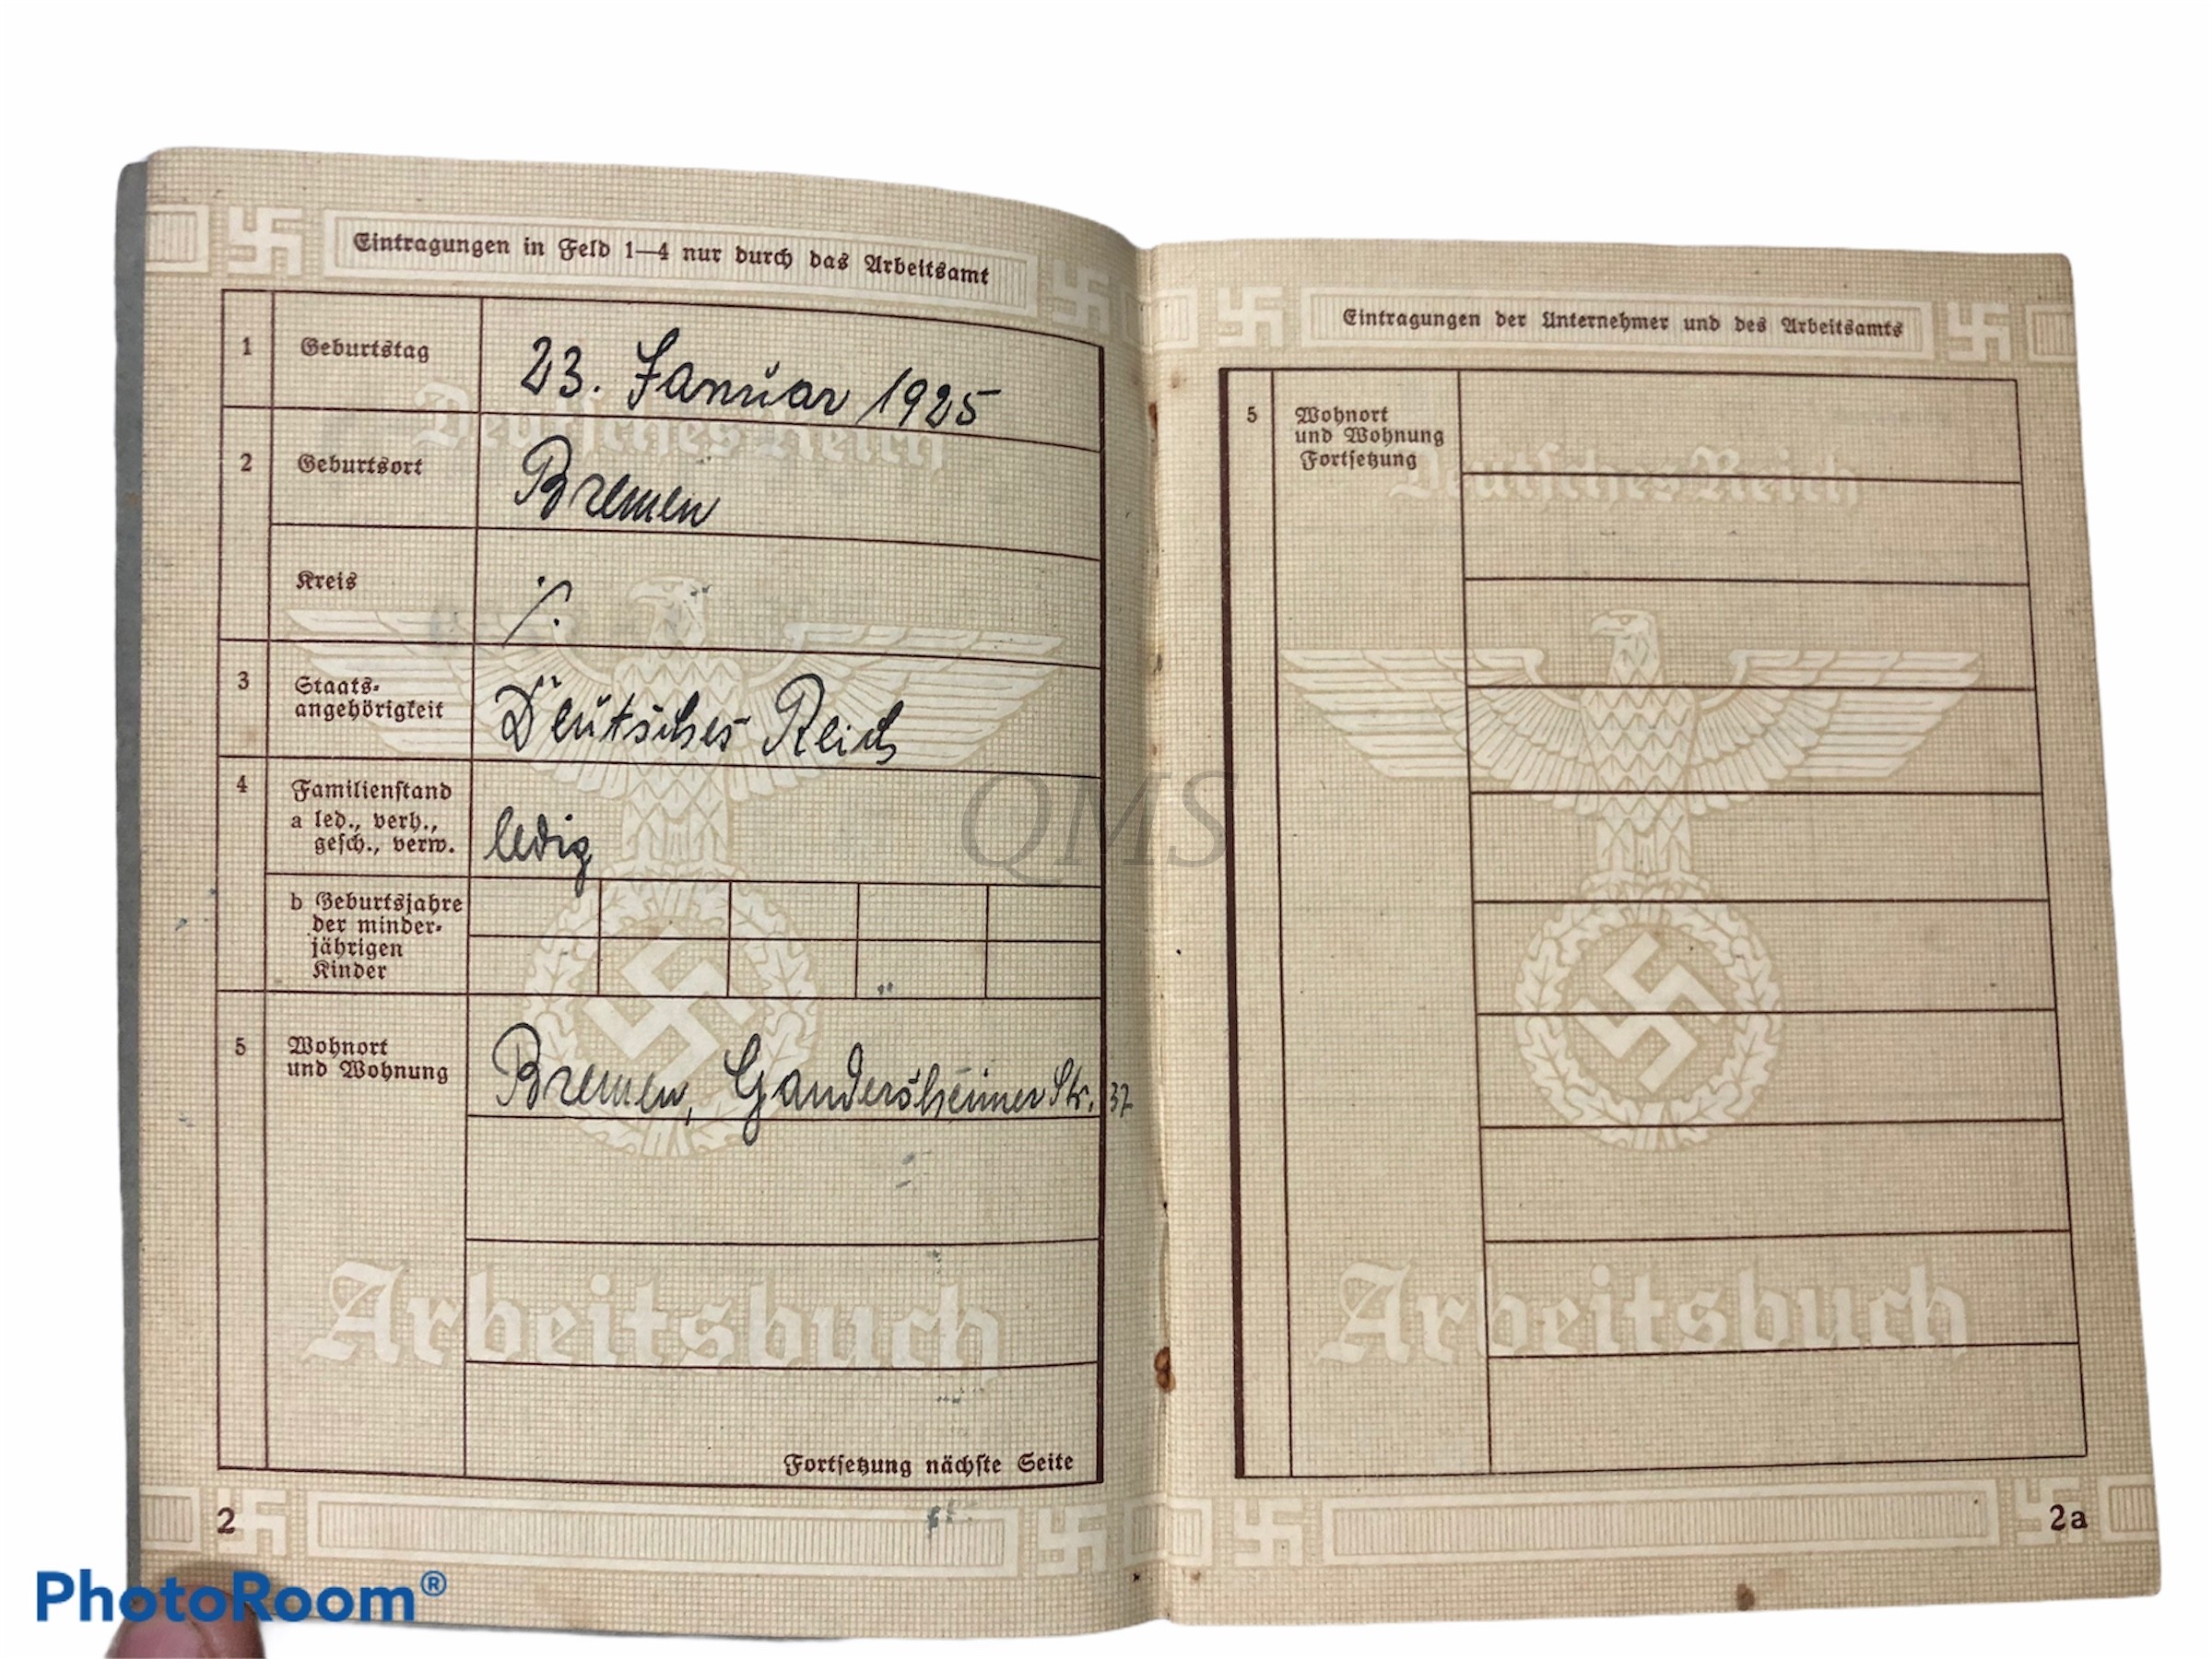 Eintragungen in Feld 1—4 nur durch das Arbeitsamt
1 Geburtstag 23. Januar 1925
Deutsches Reich
2 Geburtsort Bremen
Kreis ./.
3 Staats-
angehörigkeit Deutsches Reich
4 Familienstand
a led., verh.,
gesch., verw. ledig
b Geburtsjahre
der minder-
jährigen
Kinder
5 Wohnort
und Wohnung Bremen, Gandersheimer Str. 37
Arbeitsbuch
Fortsetzung nächste Seite
2
Eintragungen der Unternehmer und des Arbeitsamts
5 Wohnort
und Wohnung
Fortsetzung
Deutsches Reich
Arbeitsbuch
2a
QMS
PhotoRoom®